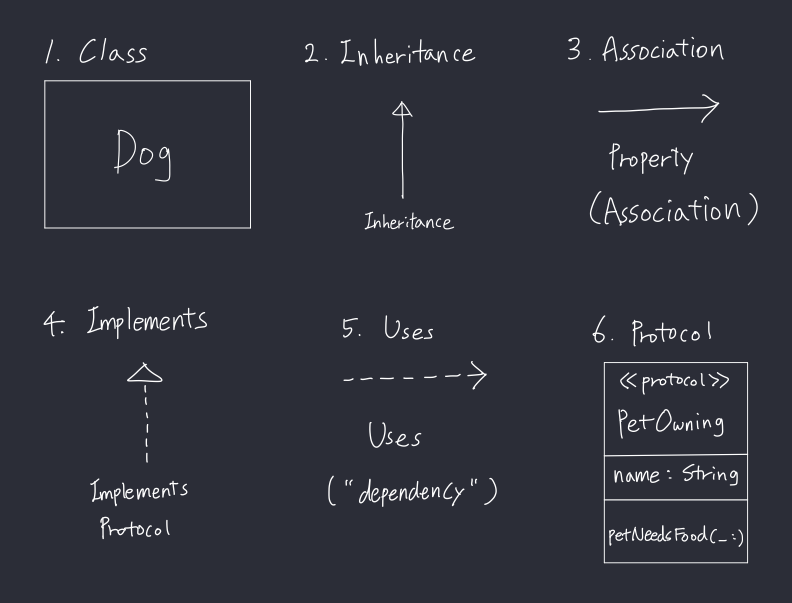 1. Class
Dog
2. Inheritance
Inheritance
3. Association
Property
(Association)
4. Implements
Implements
Protocol
5. Uses
Uses
("dependency")
6. Protocol
<<protocol>>
PetOwning
name : String
petNeedsFood(_:)